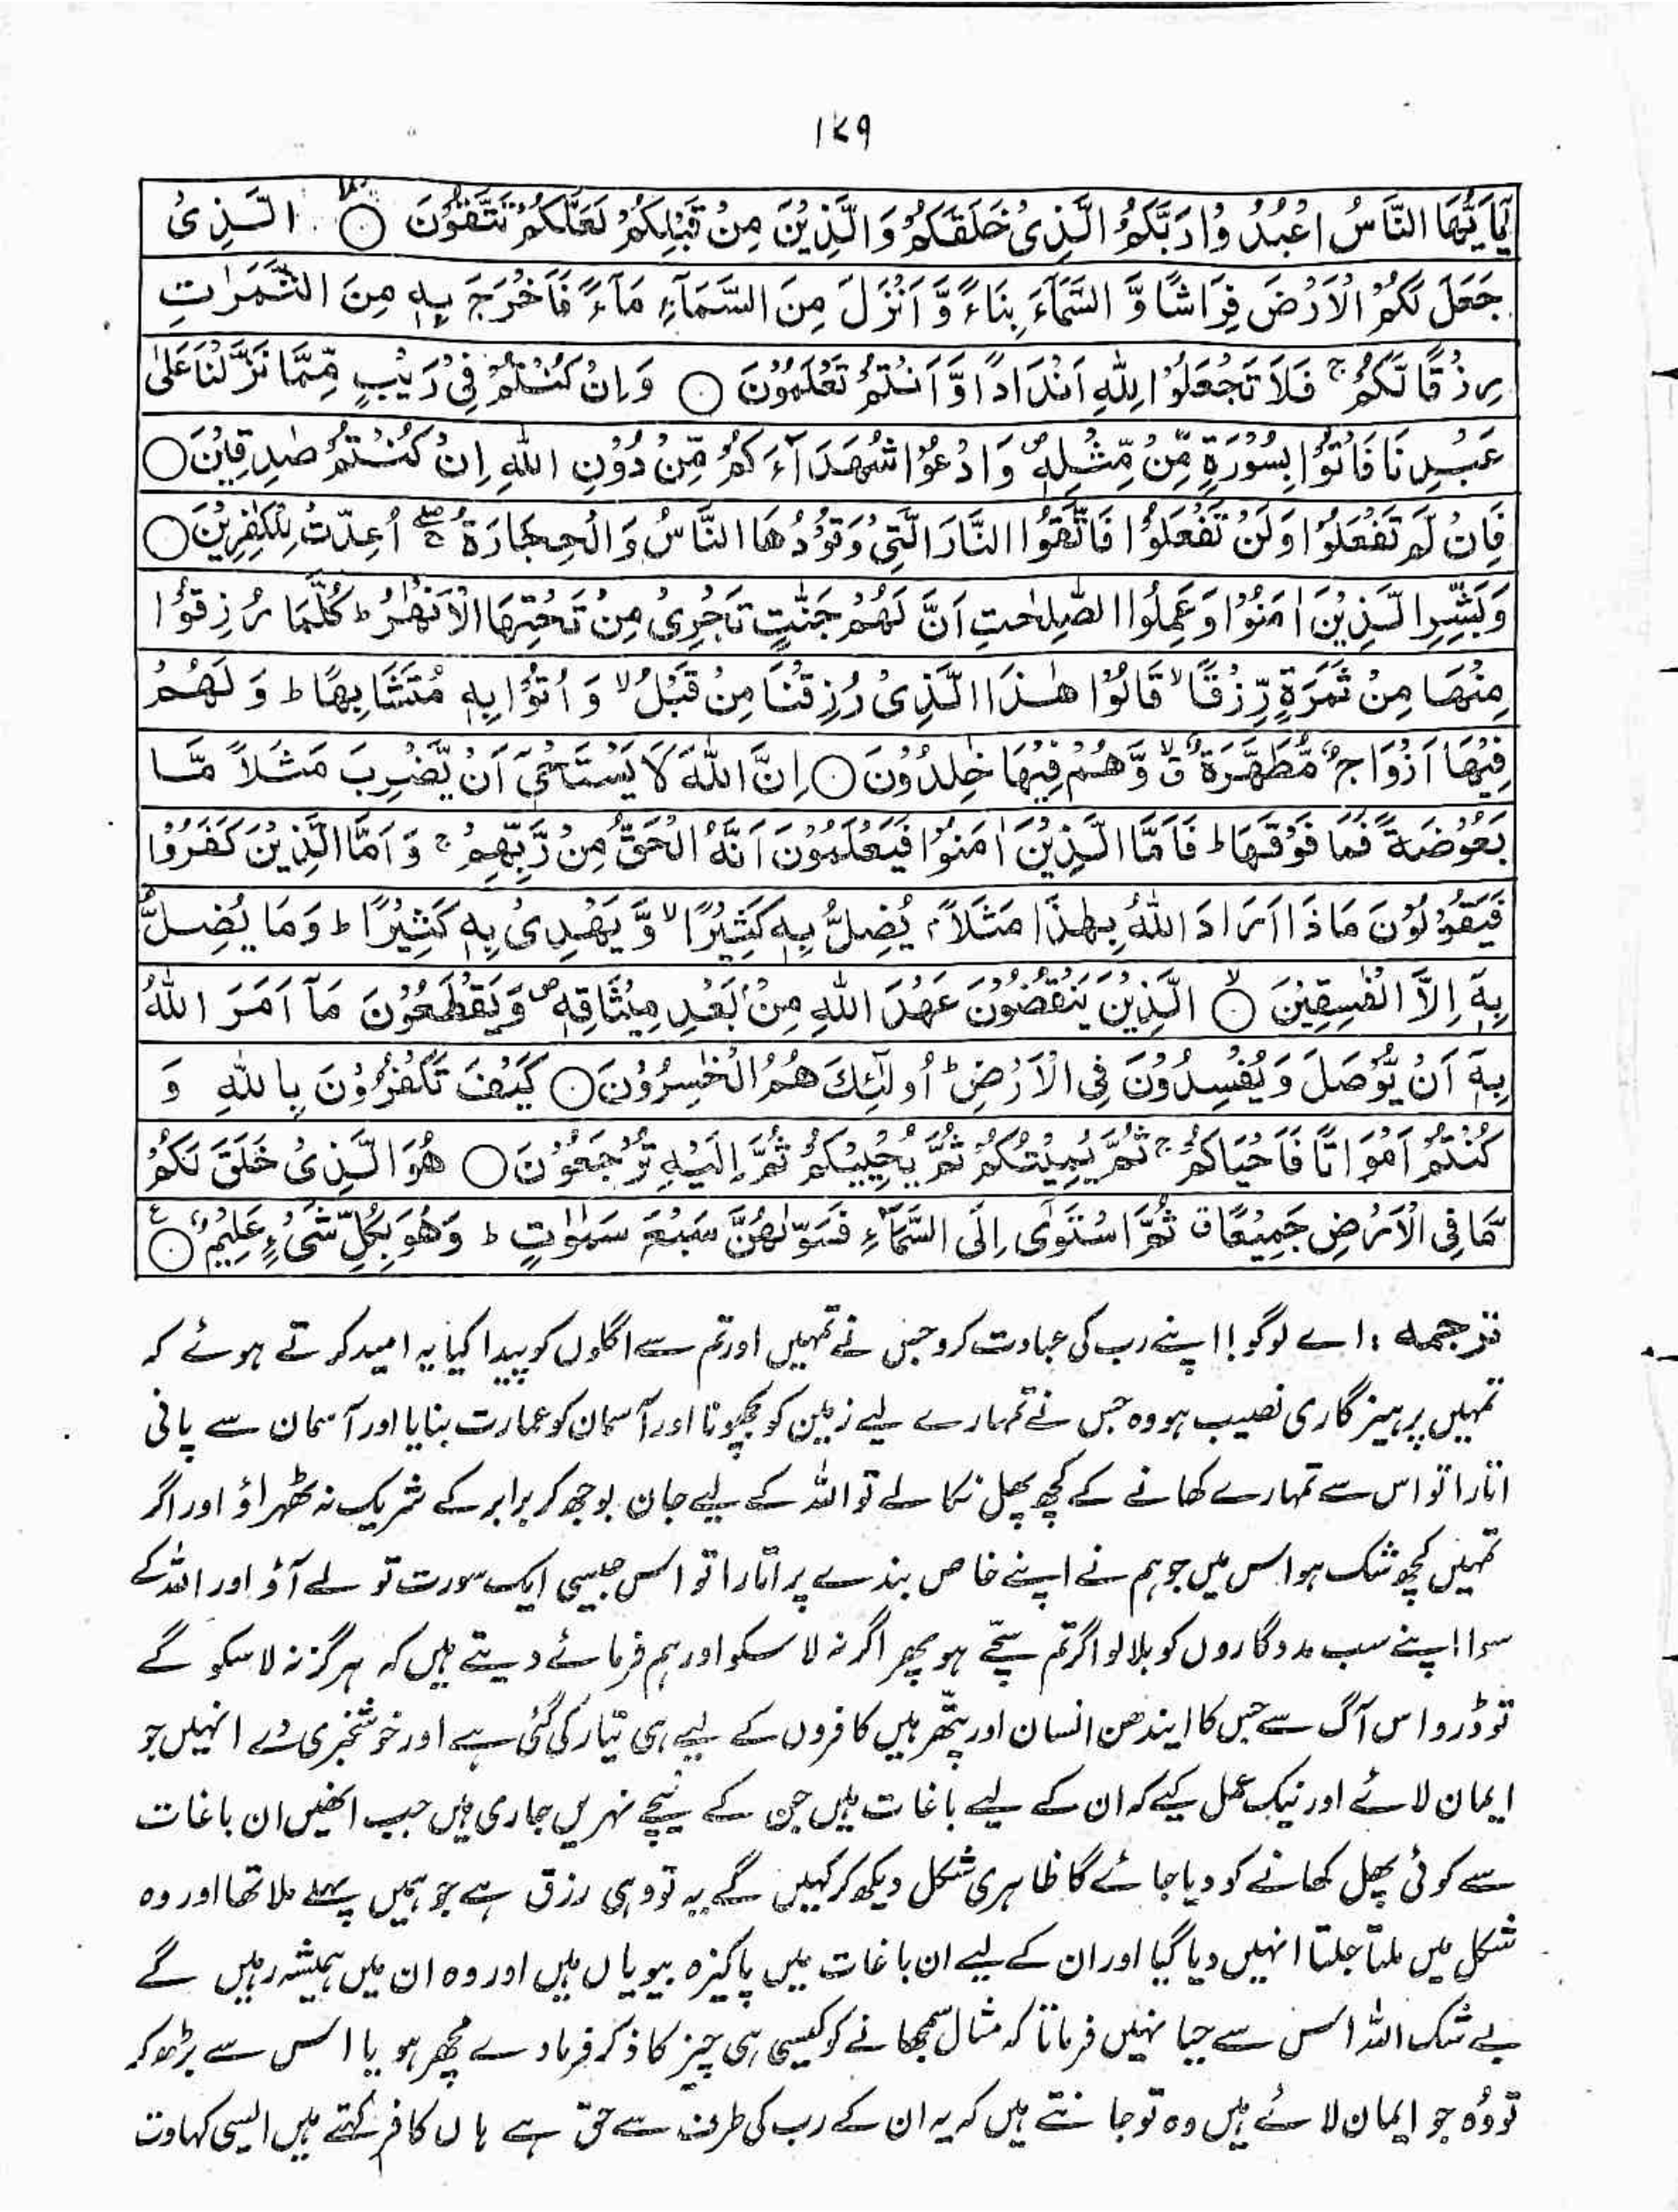 ۱۷۹
يٰٓاَيُّهَا النَّاسُ اعْبُدُوْا رَبَّكُمُ الَّذِىْ خَلَقَكُمْ وَالَّذِيْنَ مِنْ قَبْلِكُمْ لَعَلَّكُمْ تَتَّقُوْنَ ۝ الَّذِىْ
جَعَلَ لَكُمُ الْاَرْضَ فِرَاشًا وَّ السَّمَآءَ بِنَاءً وَّ اَنْزَلَ مِنَ السَّمَآءِ مَآءً فَاَخْرَجَ بِهٖ مِنَ الثَّمَرٰتِ
رِزْقًا لَّكُمْ ۚ فَلَا تَجْعَلُوْا لِلّٰهِ اَنْدَادًا وَّ اَنْتُمْ تَعْلَمُوْنَ ۝ وَ اِنْ كُنْتُمْ فِىْ رَيْبٍ مِّمَّا نَزَّلْنَا عَلٰى
عَبْدِنَا فَاْتُوْا بِسُوْرَةٍ مِّنْ مِّثْلِهٖ ۪ وَ ادْعُوْا شُهَدَآءَكُمْ مِّنْ دُوْنِ اللّٰهِ اِنْ كُنْتُمْ صٰدِقِيْنَ ۝
فَاِنْ لَّمْ تَفْعَلُوْا وَلَنْ تَفْعَلُوْا فَاتَّقُوا النَّارَ الَّتِىْ وَقُوْدُهَا النَّاسُ وَ الْحِجَارَةُ ۚۖ اُعِدَّتْ لِلْكٰفِرِيْنَ ۝
وَبَشِّرِ الَّذِيْنَ اٰمَنُوْا وَعَمِلُوا الصّٰلِحٰتِ اَنَّ لَهُمْ جَنّٰتٍ تَجْرِىْ مِنْ تَحْتِهَا الْاَنْهٰرُ ؕ كُلَّمَا رُزِقُوْا
مِنْهَا مِنْ ثَمَرَةٍ رِّزْقًا ۙ قَالُوْا هٰذَا الَّذِىْ رُزِقْنَا مِنْ قَبْلُ ۙ وَ اُتُوْا بِهٖ مُتَشَابِهًا ؕ وَ لَهُمْ
فِيْهَا اَزْوَاجٌ مُّطَهَّرَةٌ ۙ وَّ هُمْ فِيْهَا خٰلِدُوْنَ ۝ اِنَّ اللّٰهَ لَا يَسْتَحْىٖٓ اَنْ يَّضْرِبَ مَثَلًا مَّا
بَعُوْضَةً فَمَا فَوْقَهَا ؕ فَاَمَّا الَّذِيْنَ اٰمَنُوْا فَيَعْلَمُوْنَ اَنَّهُ الْحَقُّ مِنْ رَّبِّهِمْ ۚ وَ اَمَّا الَّذِيْنَ كَفَرُوْا
فَيَقُوْلُوْنَ مَاذَا اَرَادَ اللّٰهُ بِهٰذَا مَثَلًا ۘ يُضِلُّ بِهٖ كَثِيْرًا ۙ وَّ يَهْدِىْ بِهٖ كَثِيْرًا ؕ وَمَا يُضِلُّ
بِهٖٓ اِلَّا الْفٰسِقِيْنَ ۙ۝ الَّذِيْنَ يَنْقُضُوْنَ عَهْدَ اللّٰهِ مِنْۢ بَعْدِ مِيْثَاقِهٖ ۪ وَ يَقْطَعُوْنَ مَآ اَمَرَ اللّٰهُ
بِهٖٓ اَنْ يُّوْصَلَ وَ يُفْسِدُوْنَ فِى الْاَرْضِ ؕ اُولٰٓئِكَ هُمُ الْخٰسِرُوْنَ ۝ كَيْفَ تَكْفُرُوْنَ بِاللّٰهِ وَ
كُنْتُمْ اَمْوَاتًا فَاَحْيَاكُمْ ۚ ثُمَّ يُمِيْتُكُمْ ثُمَّ يُحْيِيْكُمْ ثُمَّ اِلَيْهِ تُرْجَعُوْنَ ۝ هُوَ الَّذِىْ خَلَقَ لَكُمْ
مَّا فِى الْاَرْضِ جَمِيْعًا ۗ ثُمَّ اسْتَوٰٓى اِلَى السَّمَآءِ فَسَوّٰىهُنَّ سَبْعَ سَمٰوٰتٍ ؕ وَهُوَ بِكُلِّ شَىْءٍ عَلِيْمٌ ۝
ترجمہ : اے لوگو! اپنے رب کی عبادت کرو جس نے تمہیں اور تم سے اگلوں کو پیدا کیا یہ امید کرتے ہوئے کہ
تمہیں پرہیزگاری نصیب ہو وہ جس نے تمہارے لیے زمین کو بچھونا اور آسمان کو عمارت بنایا اور آسمان سے پانی
اتارا تو اس سے تمہارے کھانے کے کچھ پھل نکالے تو اللہ کے لیے جان بوجھ کر برابر کے شریک نہ ٹھہراؤ اور اگر
تمہیں کچھ شک ہو اس میں جو ہم نے اپنے خاص بندے پر اتارا تو اس جیسی ایک سورت تو لے آؤ اور اللہ کے
سوا اپنے سب مددگاروں کو بلا لو اگر تم سچے ہو پھر اگر نہ لا سکو اور ہم فرمائے دیتے ہیں کہ ہرگز نہ لا سکو گے
تو ڈرو اس آگ سے جس کا ایندھن انسان اور پتھر ہیں کافروں کے لیے ہی تیار کی گئی ہے اور خوشخبری دے انہیں جو
ایمان لائے اور نیک عمل کیے کہ ان کے لیے باغات ہیں جن کے نیچے نہریں جاری ہیں جب انھیں ان باغات
سے کوئی پھل کھانے کو دیا جائے گا ظاہری شکل دیکھ کر کہیں گے یہ تو وہی رزق ہے جو ہمیں پہلے ملا تھا اور وہ
شکل میں ملتا جلتا انہیں دیا گیا اور ان کے لیے ان باغات میں پاکیزہ بیویاں ہیں اور وہ ان میں ہمیشہ رہیں گے
بے شک اللہ اس سے حیا نہیں فرماتا کہ مثال سمجھانے کو کیسی ہی چیز کا ذکر فرمادے مچھر ہو یا اس سے بڑھ کر
تو وُہ جو ایمان لائے ہیں وہ تو جانتے ہیں کہ یہ ان کے رب کی طرف سے حق ہے ہاں کافر کہتے ہیں ایسی کہاوت